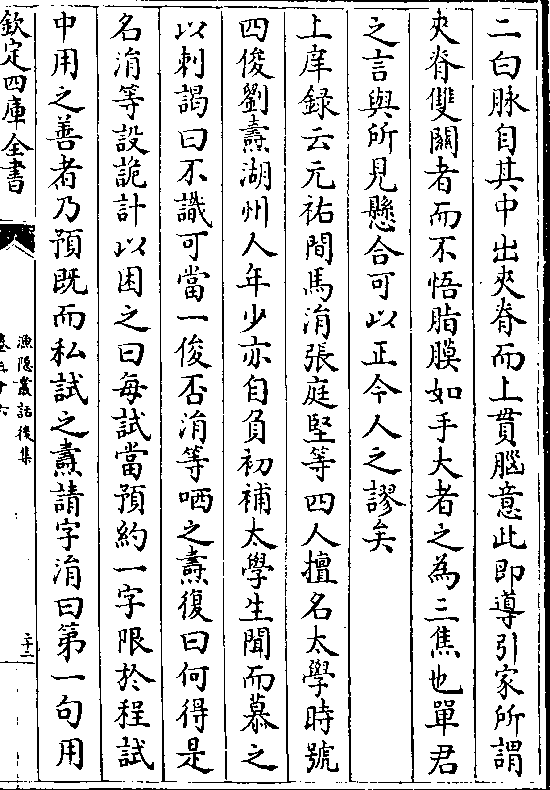 二白脉自其中出夾脊而上貫腦意此即導引家所謂
夾脊雙關者而不悟脂膜如手大者之為三焦也單君
之言與所見懸合可以正今人之謬矣
上庠録云元祐間馬涓張庭堅等四人擅名太學時號
四俊劉燾湖州人年少亦自負初補太學生聞而慕之
以刺謁曰不識可當一俊否涓等哂之燾復曰何得是
名涓等設詭計以困之曰每試當預約一字限於程試
中用之善者乃預既而私試之燾請字涓曰第一句用
欽定四庫全書
漁隱叢話後集
卷三十六
二十二